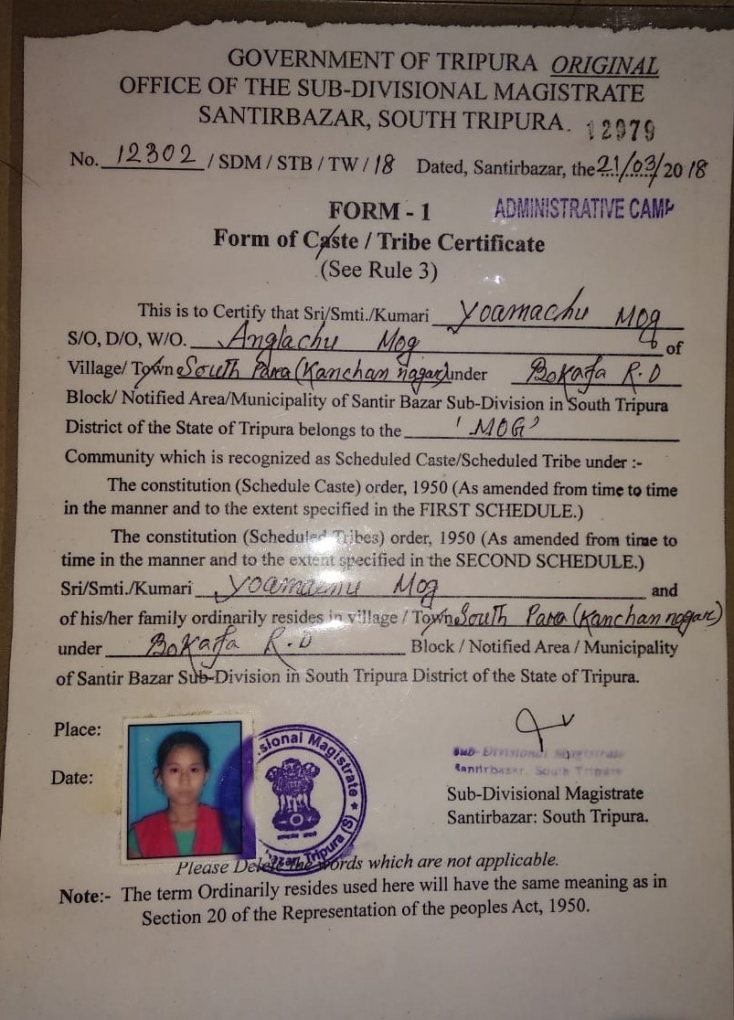 GOVERNMENT OF TRIPURA ORIGINAL
OFFICE OF THE SUB-DIVISIONAL MAGISTRATE
SANTIRBAZAR, SOUTH TRIPURA. 12979
No. 12302 / SDM / STB / TW / 18 Dated, Santirbazar, the 21/03/2018
FORM - 1 ADMINISTRATIVE CAMP
Form of Caste / Tribe Certificate
(See Rule 3)
This is to Certify that Sri/Smti./Kumari Yoamachu Mog
S/O, D/O, W/O. Anglachu Mog of
Village/ Town South Para (Kanchan nagar) under Bokafa R.D
Block/ Notified Area/Municipality of Santir Bazar Sub-Division in South Tripura
District of the State of Tripura belongs to the 'MOG'
Community which is recognized as Scheduled Caste/Scheduled Tribe under :-
The constitution (Schedule Caste) order, 1950 (As amended from time to time
in the manner and to the extent specified in the FIRST SCHEDULE.)
The constitution (Scheduled Tribes) order, 1950 (As amended from time to
time in the manner and to the extent specified in the SECOND SCHEDULE.)
Sri/Smti./Kumari Yoamachu Mog and
of his/her family ordinarily resides in village / Town South Para (Kanchan nagar)
under Bokafa R.D Block / Notified Area / Municipality
of Santir Bazar Sub-Division in South Tripura District of the State of Tripura.
Place:
Date:
sional Magistrate
bazar, Tripura (S)
Sub-Divisional Magistrate
Santirbazar, South Tripura
Sub-Divisional Magistrate
Santirbazar: South Tripura.
Please Delete the words which are not applicable.
Note:- The term Ordinarily resides used here will have the same meaning as in
Section 20 of the Representation of the peoples Act, 1950.